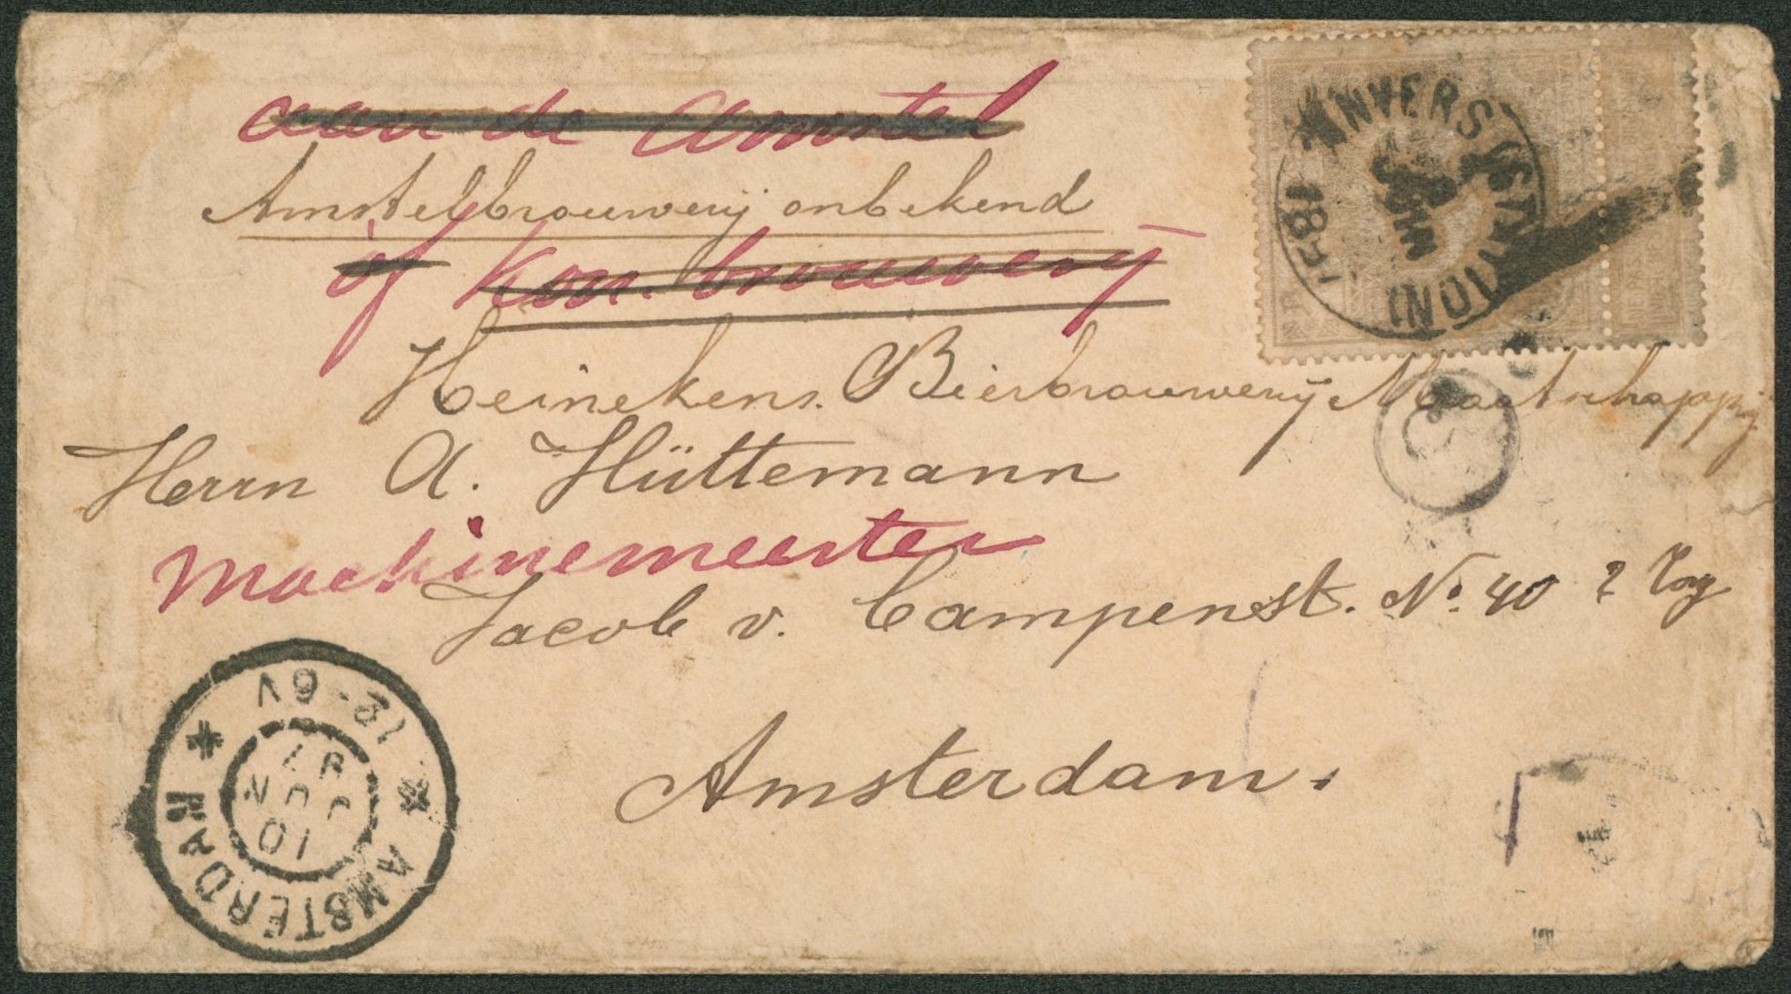 aan de Amstel
Amstelbrouwerij onbekend
of Kon. brouwerij
Heinekens Bierbrouwerij Maatschappij
Herrn A. Hüttemann
Machinemeester
Jacob v. Campenst. No. 40
Amsterdam.
ANVERS (STATION)
AMSTERDAM
12-6V
10 JUN